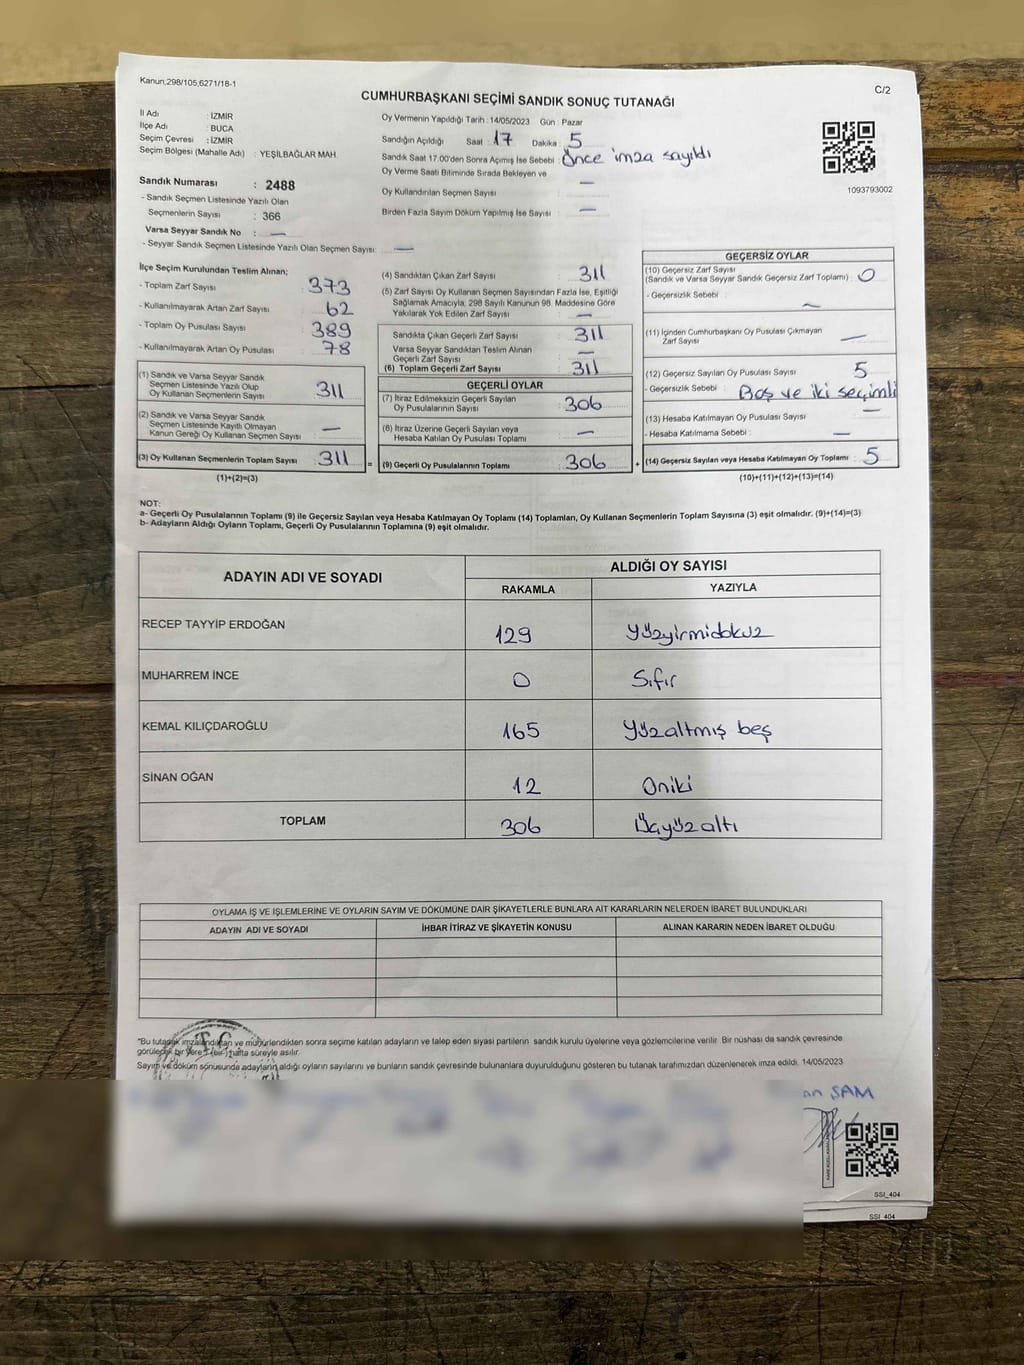 Kanun:298/105,6271/18-1
C/2
CUMHURBAŞKANI SEÇİMİ SANDIK SONUÇ TUTANAĞI
İl Adı : İZMİR
İlçe Adı : BUCA
Seçim Çevresi : İZMİR
Seçim Bölgesi (Mahalle Adı) : YEŞİLBAĞLAR MAH.
Oy Vermenin Yapıldığı Tarih : 14/05/2023 Gün : Pazar
Sandığın Açıldığı Saat : 17 Dakika : 5
Sandık Saat 17.00'den Sonra Açımış İse Sebebi : Önce imza sayıldı
Oy Verme Saati Bitiminde Sırada Bekleyen ve
Oy Kullandırılan Seçmen Sayısı —
Birden Fazla Sayım Döküm Yapılmış İse Sayısı —
1093793002
Sandık Numarası : 2488
- Sandık Seçmen Listesinde Yazılı Olan
Seçmenlerin Sayısı : 366
Varsa Seyyar Sandık No : —
- Seyyar Sandık Seçmen Listesinde Yazılı Olan Seçmen Sayısı: —
İlçe Seçim Kurulundan Teslim Alınan;
- Toplam Zarf Sayısı : 373
- Kullanılmayarak Artan Zarf Sayısı : 62
- Toplam Oy Pusulası Sayısı : 389
- Kullanılmayarak Artan Oy Pusulası : 78
(1) Sandık ve Varsa Seyyar Sandık
Seçmen Listesinde Yazılı Olup
Oy Kullanan Seçmenlerin Sayısı : 311
(2) Sandık ve Varsa Seyyar Sandık
Seçmen Listesinde Kayıtlı Olmayan
Kanun Gereği Oy Kullanan Seçmen Sayısı : —
(3) Oy Kullanan Seçmenlerin Toplam Sayısı : 311 =
(1)+(2)=(3)
(4) Sandıktan Çıkan Zarf Sayısı : 311
(5) Zarf Sayısı Oy Kullanan Seçmen Sayısından Fazla İse, Eşitliği
Sağlamak Amacıyla, 298 Sayılı Kanunun 98. Maddesine Göre
Yakılarak Yok Edilen Zarf Sayısı : —
Sandıkta Çıkan Geçerli Zarf Sayısı : 311
Varsa Seyyar Sandıktan Teslim Alınan
Geçerli Zarf Sayısı : —
(6) Toplam Geçerli Zarf Sayısı : 311
GEÇERLİ OYLAR
(7) İtiraz Edilmeksizin Geçerli Sayılan
Oy Pusulalarının Sayısı : 306
(8) İtiraz Üzerine Geçerli Sayılan veya
Hesaba Katılan Oy Pusulası Toplamı : —
(9) Geçerli Oy Pusulalarının Toplamı : 306 +
GEÇERSİZ OYLAR
(10) Geçersiz Zarf Sayısı
(Sandık ve Varsa Seyyar Sandık Geçersiz Zarf Toplamı) : 0
- Geçersizlik Sebebi : —
(11) İçinden Cumhurbaşkanı Oy Pusulası Çıkmayan
Zarf Sayısı : —
(12) Geçersiz Sayılan Oy Pusulası Sayısı : 5
- Geçersizlik Sebebi : Boş ve iki seçimli
(13) Hesaba Katılmayan Oy Pusulası Sayısı : —
- Hesaba Katılmama Sebebi : —
(14) Geçersiz Sayılan veya Hesaba Katılmayan Oy Toplamı : 5
(10)+(11)+(12)+(13)=(14)
NOT:
a- Geçerli Oy Pusulalarının Toplamı (9) ile Geçersiz Sayılan veya Hesaba Katılmayan Oy Toplamı (14) Toplamları, Oy Kullanan Seçmenlerin Toplam Sayısına (3) eşit olmalıdır. (9)+(14)=(3)
b- Adayların Aldığı Oyların Toplamı, Geçerli Oy Pusulalarının Toplamına (9) eşit olmalıdır.
ADAYIN ADI VE SOYADI ALDIĞI OY SAYISI
RAKAMLA YAZIYLA
RECEP TAYYİP ERDOĞAN 129 Yüzyirmidokuz
MUHARREM İNCE 0 Sıfır
KEMAL KILIÇDAROĞLU 165 Yüzaltmış beş
SİNAN OĞAN 12 Oniki
TOPLAM 306 Üçyüzaltı
OYLAMA İŞ VE İŞLEMLERİNE VE OYLARIN SAYIM VE DÖKÜMÜNE DAİR ŞİKAYETLERLE BUNLARA AİT KARARLARIN NELERDEN İBARET BULUNDUKLARI
ADAYIN ADI VE SOYADI İHBAR İTİRAZ VE ŞİKAYETİN KONUSU ALINAN KARARIN NEDEN İBARET OLDUĞU
T.C.
"Bu tutanak imzalandıktan ve mühürlendikten sonra seçime katılan adayların ve talep eden siyasi partilerin sandık kurulu üyelerine veya gözlemcilerine verilir. Bir nüshası da sandık çevresinde
görülecek bir yere 1 (bir-) hafta süreyle asılır.
Sayım ve döküm sonusunda adayların aldığı oyların sayılarını ve bunların sandık çevresinde bulunanlara duyurulduğunu gösteren bu tutanak tarafımızdan düzenlenerek imza edildi. 14/05/2023
ŞAM
SSI_404
SSI_404